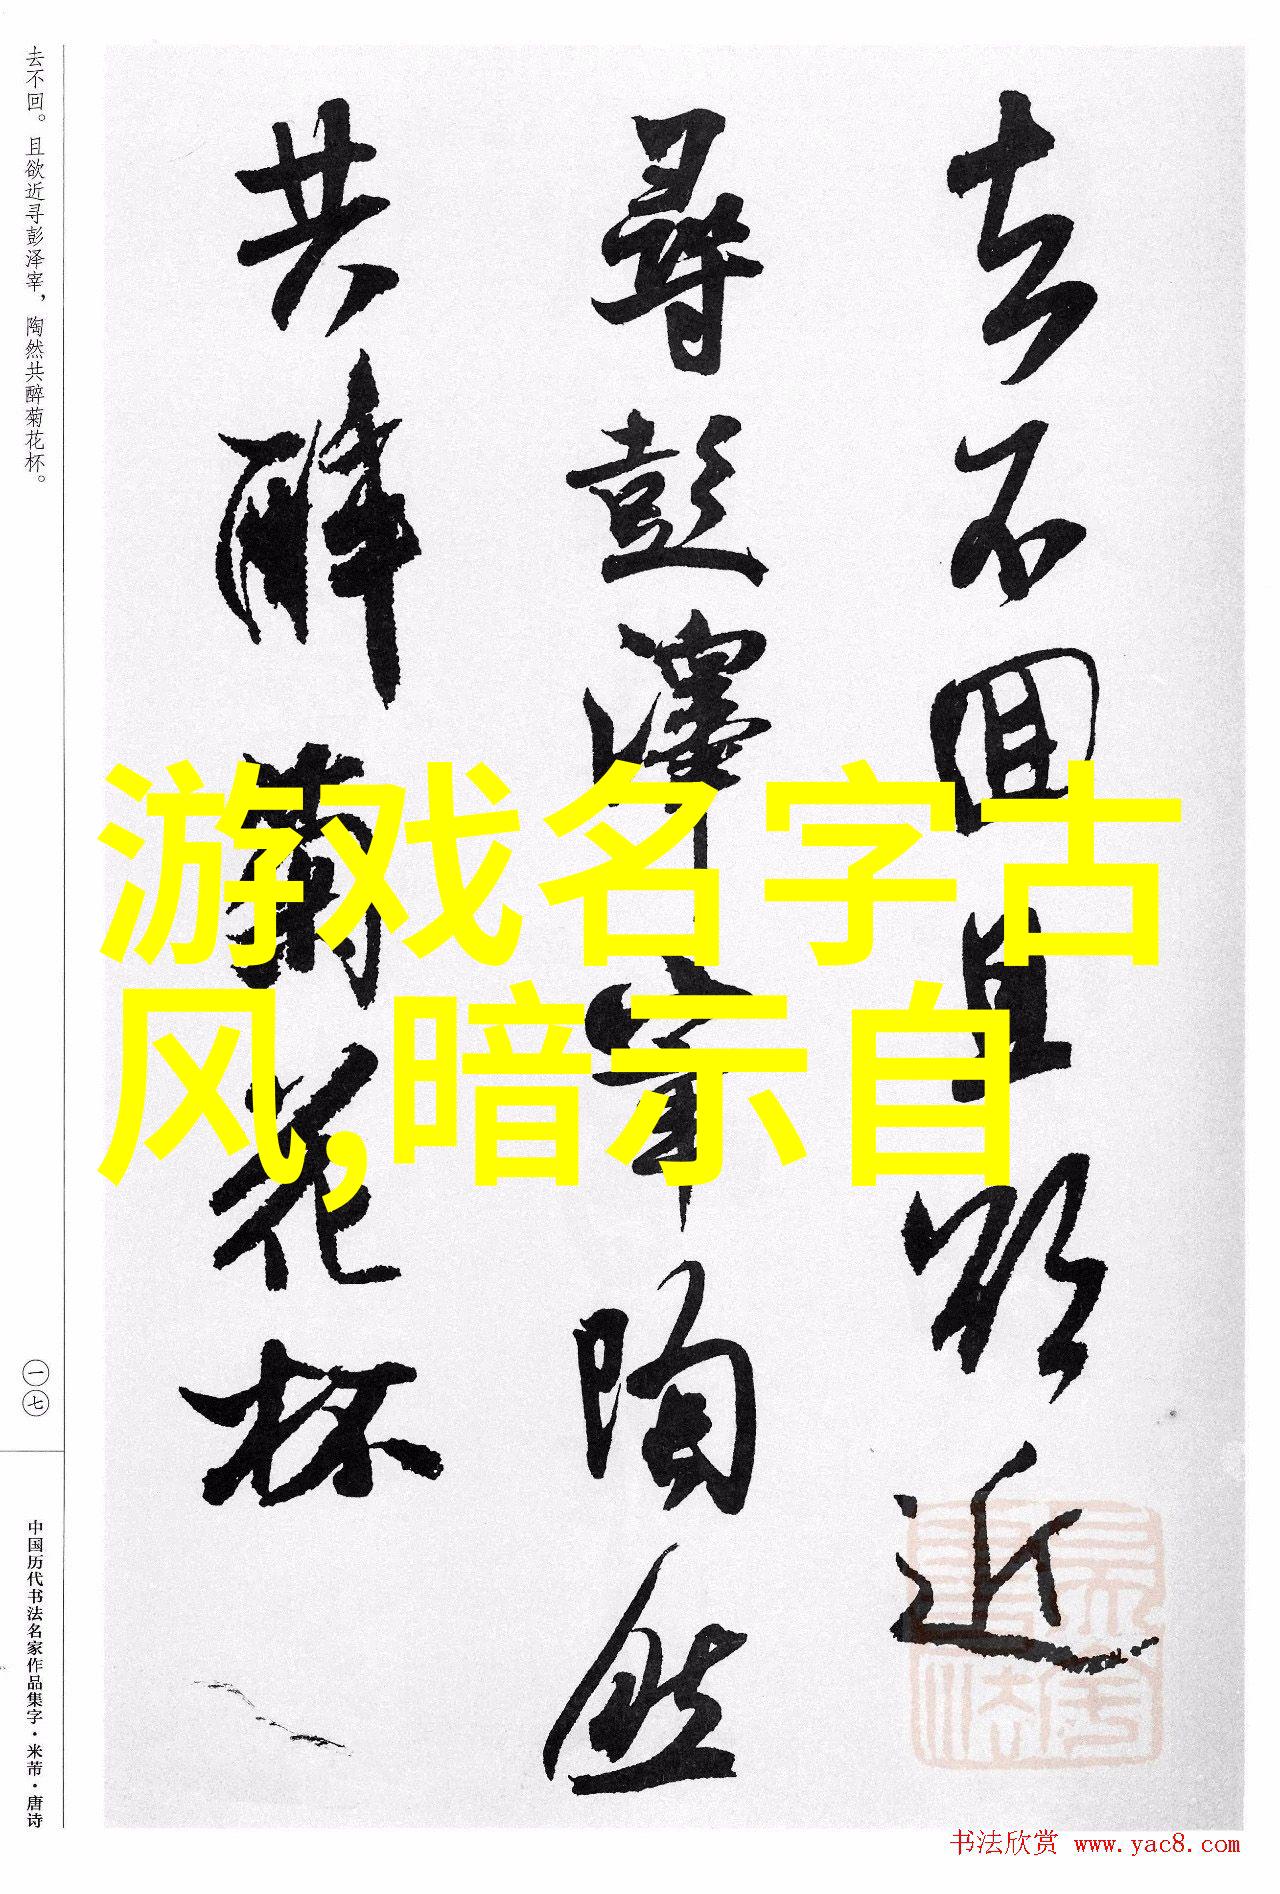 去不回。且欲近寻彭泽宰，陶然共醉菊花杯。
去不回且欲近
尋彭澤宰陶然
共醉菊花杯
游戏名字古
风,暗示自
一七
中国历代书法名家作品集字·米芾·唐诗
书法欣赏 www.yac8.com